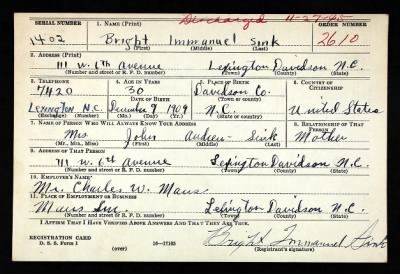 Discharged 11-27-45
SERIAL NUMBER 1. NAME (Print) ORDER NUMBER
1402 Bright Immanuel Sink 2610
(First) (Middle) (Last)
2. ADDRESS (Print)
111 W. 6th Avenue Lexington Davidson N.C.
(Number and street or R. F. D. number) (Town) (County) (State)
3. TELEPHONE 4. AGE IN YEARS 5. PLACE OF BIRTH 6. COUNTRY OF CITIZENSHIP
7420 30 Davidson Co.
DATE OF BIRTH (Town or county)
Lexington N.C. December 9 1909 N.C. United States
(Exchange) (Number) (Mo.) (Day) (Yr.) (State or country)
7. NAME OF PERSON WHO WILL ALWAYS KNOW YOUR ADDRESS 8. RELATIONSHIP OF THAT PERSON
Mrs. John Sink Mother
(Mr., Mrs., Miss) (First) (Middle) (Last)
9. ADDRESS OF THAT PERSON
111 W. 6th Avenue Lexington Davidson N.C.
(Number and street or R. F. D. number) (Town) (County) (State)
10. EMPLOYER'S NAME
Mr. Charles W.
11. PLACE OF EMPLOYMENT OR BUSINESS
Lexington Davidson N.C.
(Number and street or R. F. D. number) (Town) (County) (State)
I AFFIRM THAT I HAVE VERIFIED ABOVE ANSWERS AND THAT THEY ARE TRUE.
REGISTRATION CARD
D. S. S. Form 1 (over) 16-17105 Bright Immanuel Sink
(Registrant's signature)